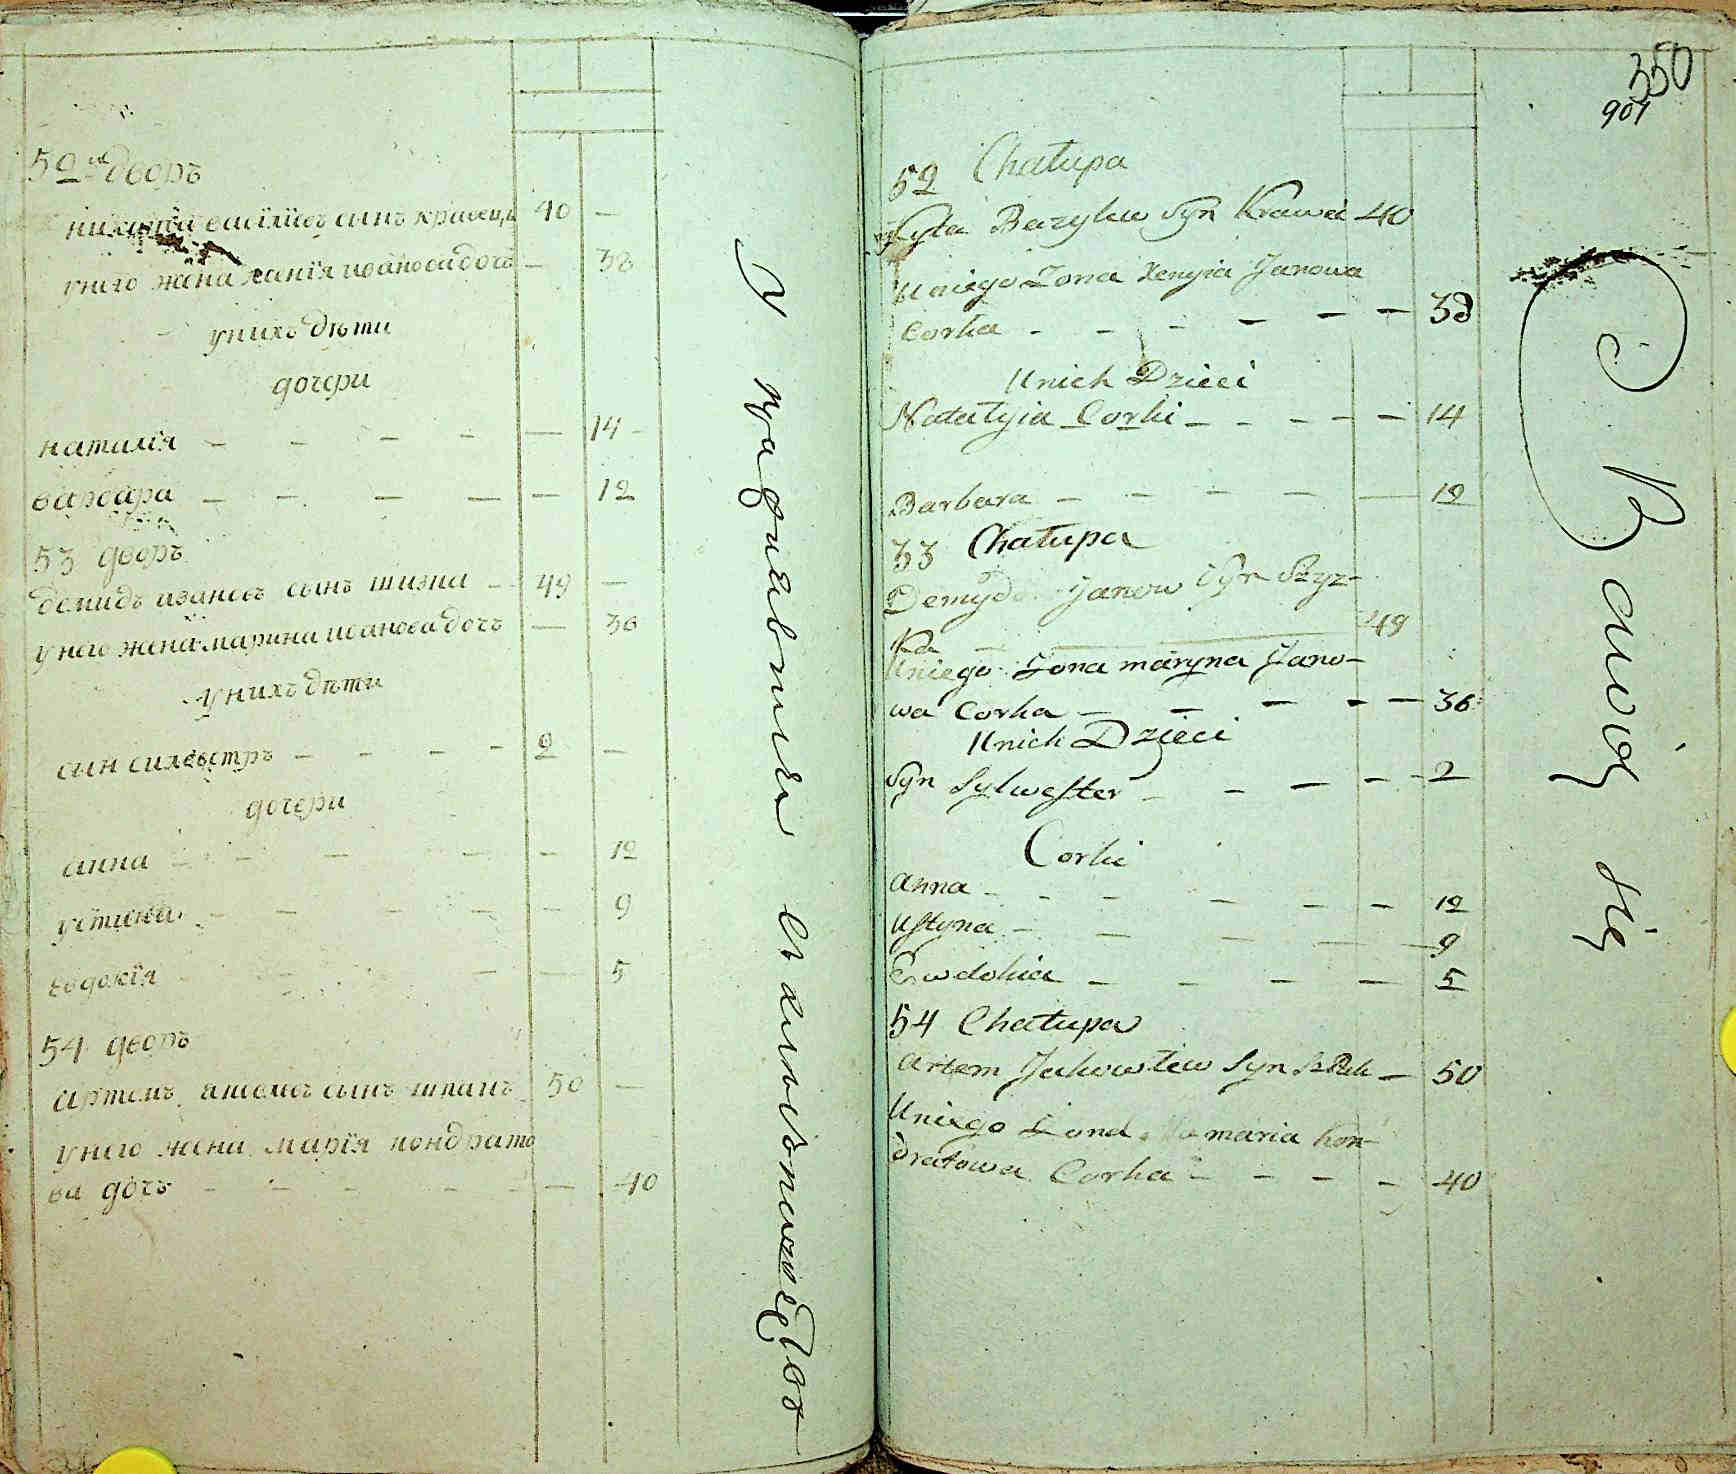 52 дворъ
никита василиевъ сынъ кравецъ 40 —
у него жена ксенїя иванова дочь — 38
у нихъ дѣти
дочери
наталїя — — — — — 14
варвара — — — — — 12
53 дворъ
демидъ ивановъ сынъ шизка — 49 —
у него жена марина иванова дочь — 36
у нихъ дѣти
сын силвестръ — — — — 2 —
дочери
анна — — — — — 12
устина — — — — — 9
евдокїя — — — — 5
54 дворъ
артемъ яковлевъ сынъ шпакъ 50 —
у него жена марїя кондрато
ва дочь — — — — — 40
350
901
52 Chałupa
Nykyta Bazylew Syn Krawec 40
U niego Zona Xenyia Janowa
Corka — — — — — — 38
U nich Dzieci
Natalyia Corki — — — — — 14
Barbara — — — — — 12
53 Chałupa
Demyd Janow Syn Szyz-
ka — 49
U niego Zona maryna Jano-
wa Corka — — — — — 36
U nich Dzieci
Syn Sylwester — — — — — 2
Corki
anna — — — — — — 12
Ustyna — — — — — 9
Ewdokia — — — — 5
54 Chałupa
Artem Jakowlew Syn Szpak — 50
U niego Zona maria Kon-
dratowa Corka — — — — 40